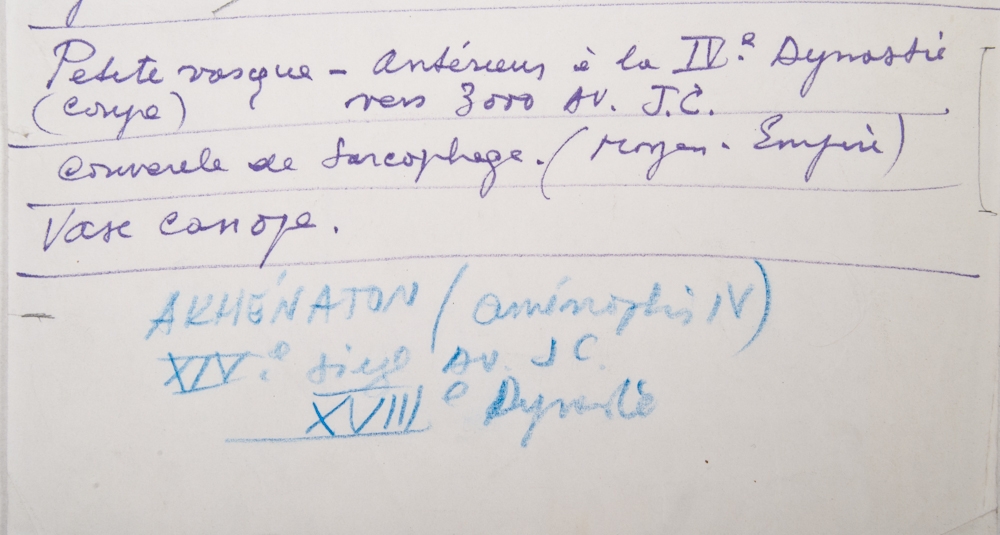 Petite vasque - Antérieur à la IVe Dynastie
(Coupe) vers 3000 AV. J.C.
Couvercle de Sarcophage. (Moyen-Empire)
Vase canope.
AKHÉNATON (Aménophis IV)
XIVe siècle AV. J C.
XVIIIe Dynastie